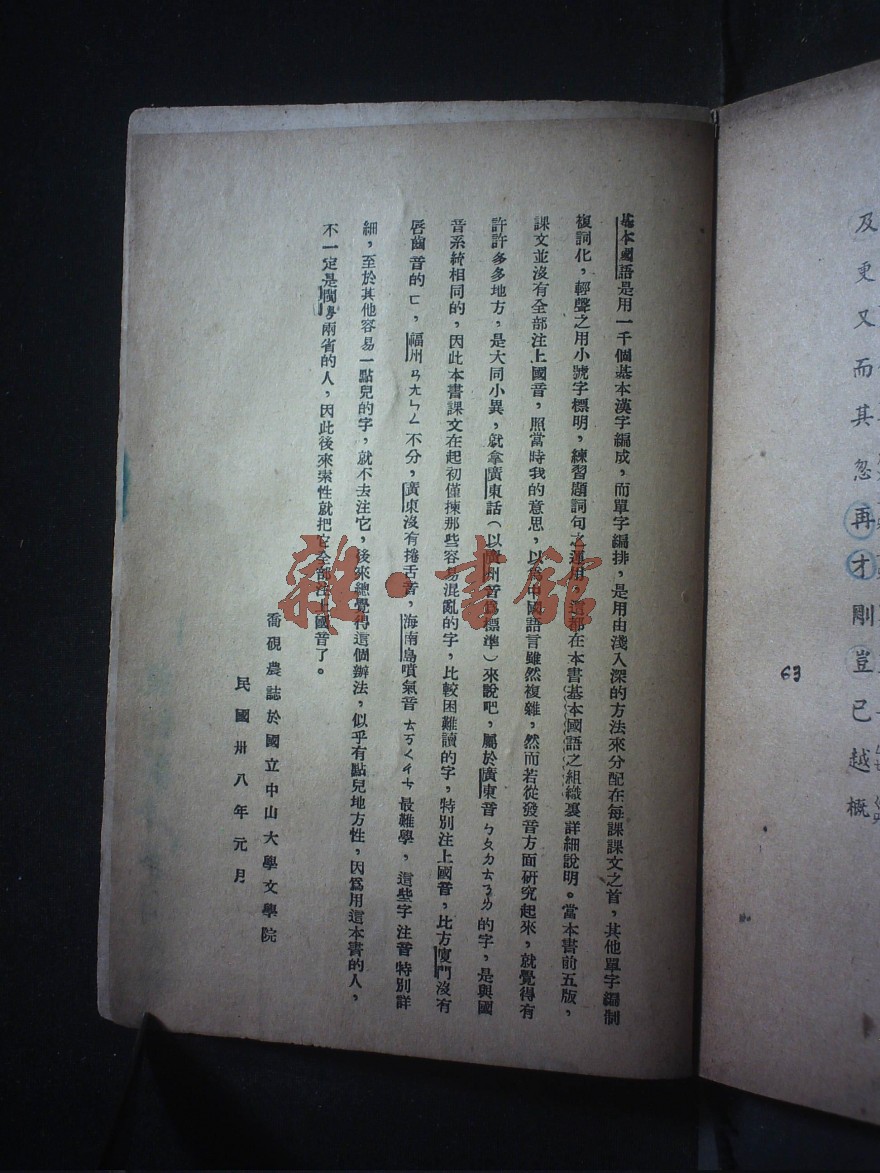 基本國語是用一千個基本漢字編成，而單字編排，是用由淺入深的方法來分配在每課課文之首，其他單字編制
複詞化，輕聲之用小號字標明，練習題詞句之運用，這都在本書基本國語之組織裏詳細說明。當本書前五版，
課文並沒有全部注上國音，照當時我的意思，以為中國語言雖然複雜，然而若從發音方面研究起來，就覺得有
許許多多地方，是大同小異，就拿廣東話（以廣州音為標準）來說吧，屬於廣東音ㄅㄆㄉㄊㄋㄌ的字，是與國
音系統相同的，因此本書課文在起初僅揀那些容易混亂的字，比較困難讀的字，特別注上國音，比方廈門沒有
唇齒音的ㄈ，福州ㄢㄤㄣㄥ不分，廣東沒有捲舌音，海南島噴氣音ㄊㄎㄑㄔㄘ最難學，這些字注音特別詳
細，至於其他容易一點兒的字，就不去注它，後來總覺得這個辦法，似乎有點兒地方性，因爲用這本書的人，
不一定是閩粵兩省的人，因此後來索性就把它全部注上國音了。
喬硯農誌於國立中山大學文學院
民國卅八年元月
雜·書館
及更又而其忽再才剛豈已越概
63